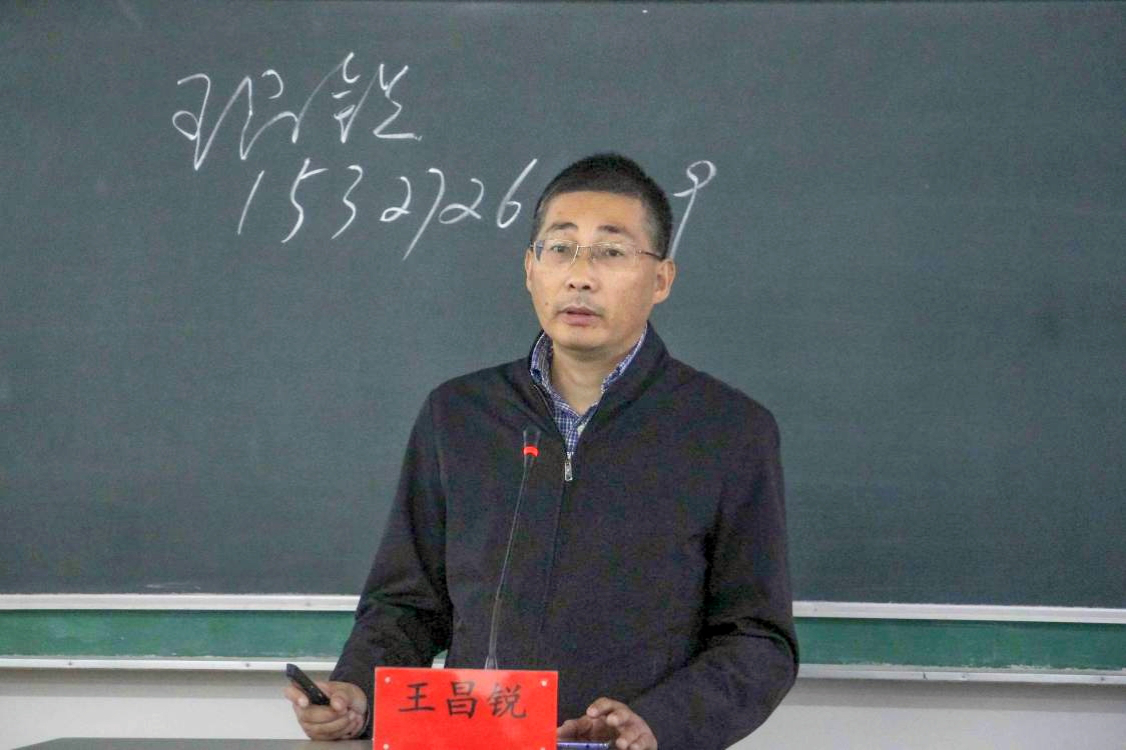 王昌锐
1532726
9
王昌锐